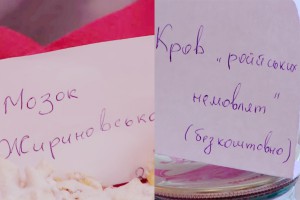 Мозок
Жириновсько
Кров „ройійських
немовлят“
(безкоштовно)